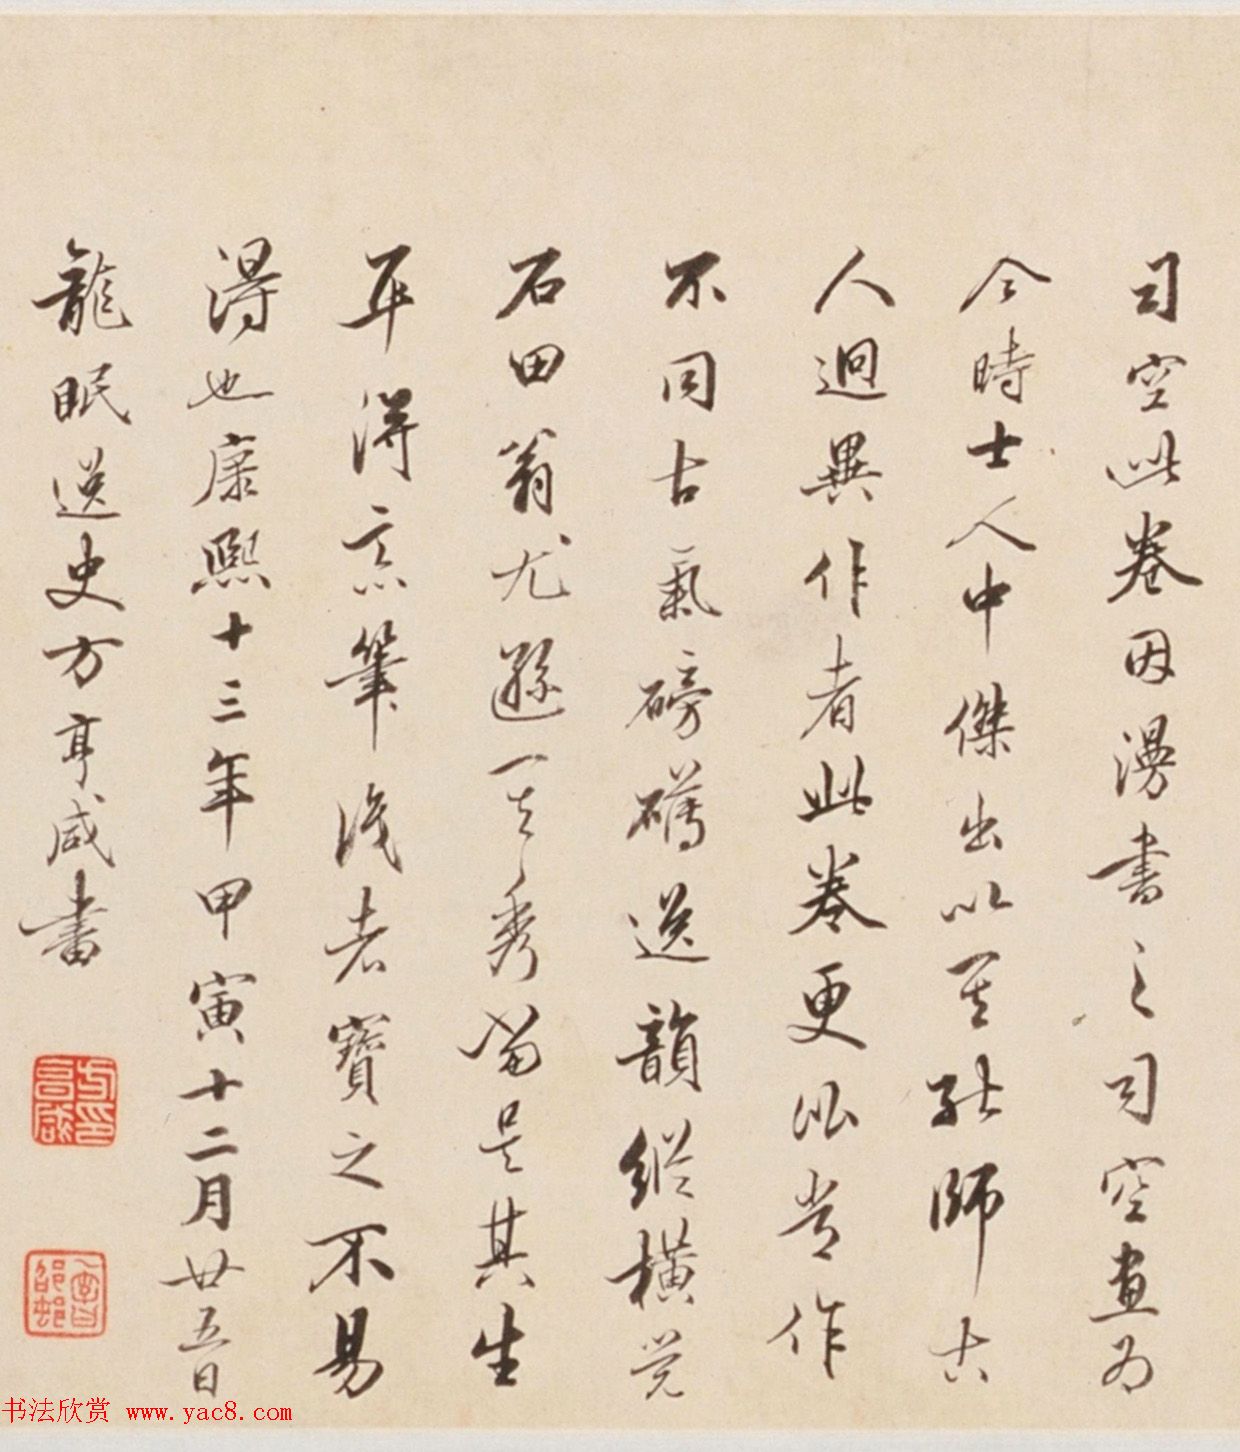 司空此卷因漫書之司空畫為
今時士人中傑出以其能師古
人迥異作者此卷更以岩作
不同古氣磅礴逸韻縱橫覺
石田翁尤遜一其秀當是其生
平得意筆後者寶之不易
得也康熙十三年甲寅十二月廿五日
龍眠逸史方亨咸書
方亨咸印
邵邨
书法欣赏 www.yac8.com